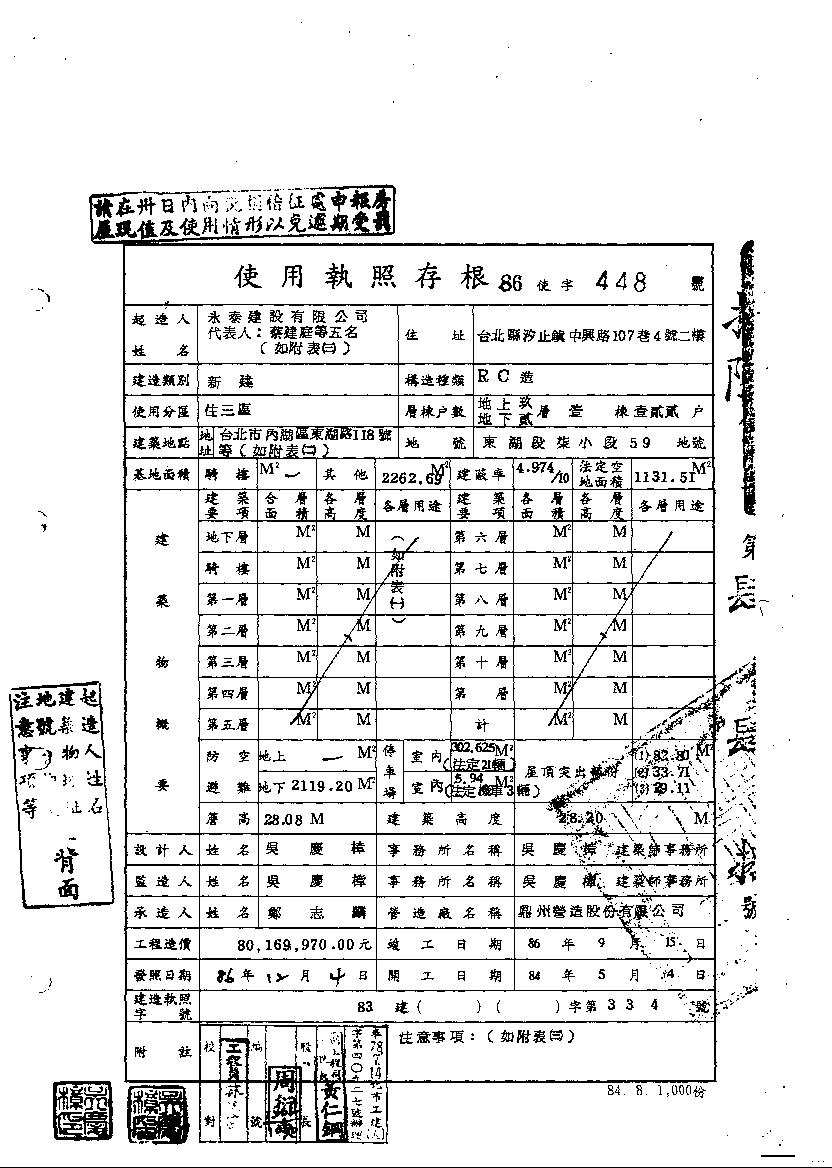 請在卅日內向
申報房
屋現值及使用情形以免逾期受罰
使用執照存根 86 使字 448 號
起造人
姓名
永泰建設有限公司
代表人：蔡建庭等五名
（如附表㈡）
住址
台北縣汐止鎮中興路107巷4號二樓
建造類別 新建 構造種類 RC造
使用分區 住三區 層棟戶數 地上玖 層 壹 棟壹貳貳戶
地下貳
建築地點 地址 台北市內湖區東湖路118號
等（如附表㈡）
地號 東湖段柒小段59地號
基地面積 騎樓 M² 一 其他 2262.69 M² 建蔽率 4.974/10 法定空地面積 1131.51 M²
建築要項 合層面積 各層高度 各層用途 建築要項 各層面積 各層高度 各層用途
建築物概要
地下層 M² M （如附表㈠） 第六層 M² M
騎樓 M² M 第七層 M² M
第一層 M² M 第八層 M² M
第二層 M² M 第九層 M² M
第三層 M² M 第十層 M² M
第四層 M² M 第層 M² M
第五層 M² M 計 M² M
防空避難 地上 一 M² 停車場 室內 302.625M²
（法定21輛）
屋頂突出部份 (1) 82.80 M²
(2) 33.71
(3) 29.11
地下 2119.20 M² 室內 5.94 M²
簷高 28.08 M 建築高度 28.20 M
設計人 姓名 吳慶樟 事務所名稱 吳慶樟建築師事務所
監造人 姓名 吳慶樟 事務所名稱 吳慶樟建築師事務所
承造人 姓名 鄭志 營造廠名稱 鼎州營造股份有限公司
工程造價 80,169,970.00元 竣工日期 86年9月15日
發照日期 86年12月4日 開工日期 84年5月4日
建造執照字號 83 建（ ）（ ）字第 334 號
附註
校對
工程員
號
周
長
黃仁鋼
注意事項：（如附表㈢）
84. 8. 1,000份
起造人
建築物
地號
注意事項等
背面
第
號